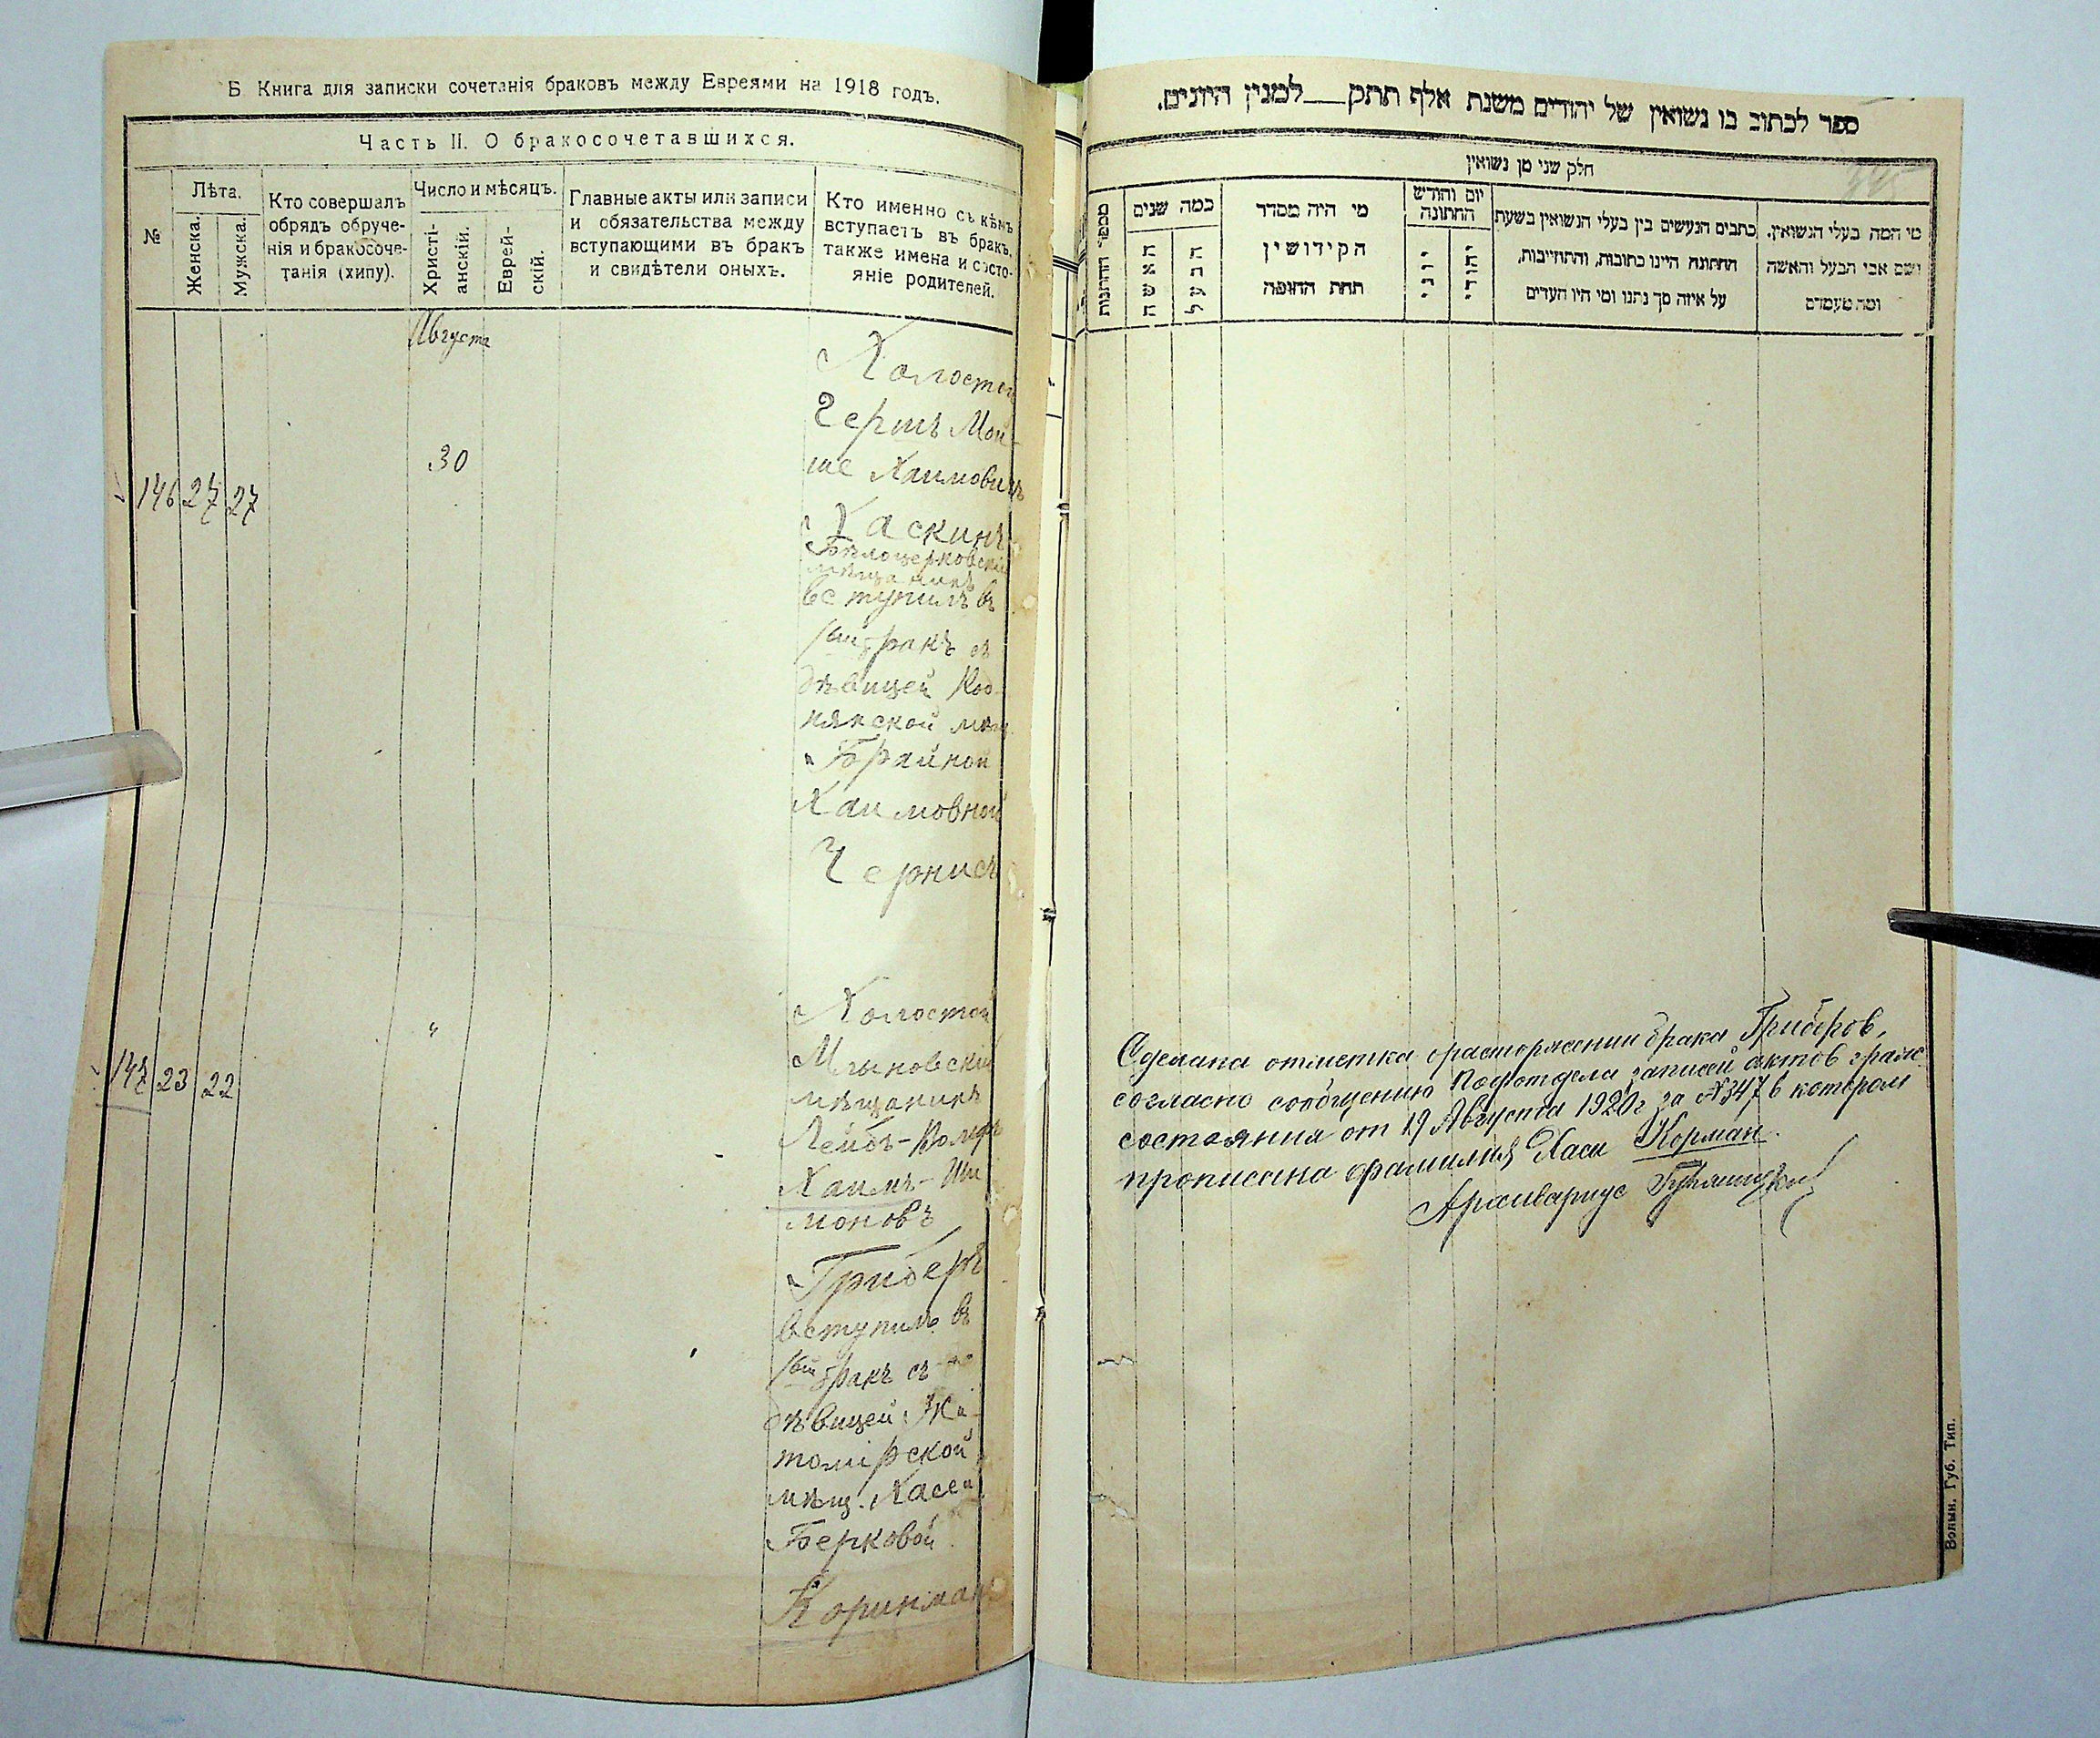 Б. Книга для записки сочетанія браковъ между Евреями на 1918 годъ.
Часть II. О бракосочетавшихся.
№
Лѣта.
Женска.
Мужска.
Кто совершалъ
обрядъ обруче-
нія и бракосоче-
танія (хипу).
Число и мѣсяцъ.
Христі-
анскій.
Еврей-
скій.
Главные акты или записи
и обязательства между
вступающими въ бракъ
и свидѣтели оныхъ.
Кто именно съ кѣмъ
вступаетъ въ бракъ,
также имена и состо-
яніе родителей.
Августа
146 27 27
30
Холостой
Гершъ Мой-
ше Хаимовичъ
Хаскинъ
Бѣлоцерковскій
мѣщанинъ
вступилъ въ
1ый бракъ съ
дѣвицей
мѣщ.
Брайной
Хаимовной
Чернисъ
147 23 22
"
Холостой
Млыновскій
мѣщанинъ
Лейбъ-Вольфъ
Хаимъ-Ши
моновъ
Гриберъ
вступилъ въ
1ый бракъ съ
дѣвицей Жи-
томірской
мѣщ. Хасей
Берковой
Коринманъ
ספר לכתוב בו נשואין של יהודים משנת אלף תתק___למנין היונים.
חלק שני מן נשואין
מספר החתנות
כמה שנים
האשה
הבעל
מי היה מסדר
הקידושין
תחת החופה
יום וחודש
החתונה
יוני
יהודי
כתבים הנעשים בין בעלי הנשואין בשעת
החתונה היינו כתובות, והתחייבות,
על איזה סך נתנו ומי היו העדים
מי המה בעלי הנשואין.
ושם אבי הבעל והאשה
ומה מעמדם
Сделана отметка о расторжении брака Гриберов,
согласно сообщению Подотдела записей актов граж.
состояния от 19 Августа 1920г за №347 в котором
прописана фамилия Хаси Корман.
Архивариус
Волын. Губ. Тип.